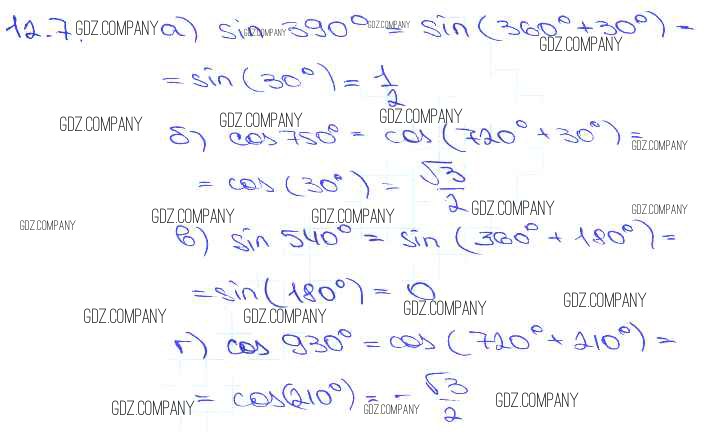 12.7. GDZ.COMPANY а) sin 390° = sin(360° + 30°) =
GDZ.COMPANY GDZ.COMPANY GDZ.COMPANY
= sin(30°) = 1/2
GDZ.COMPANY GDZ.COMPANY GDZ.COMPANY
б) cos 750° = cos(720° + 30°) =
GDZ.COMPANY
= cos(30°) = √3/2
GDZ.COMPANY GDZ.COMPANY
GDZ.COMPANY GDZ.COMPANY GDZ.COMPANY
в) sin 540° = sin(360° + 180°) =
= sin(180°) = 0
GDZ.COMPANY GDZ.COMPANY GDZ.COMPANY GDZ.COMPANY
г) cos 930° = cos(720° + 210°) =
= cos(210°) = - √3/2
GDZ.COMPANY GDZ.COMPANY GDZ.COMPANY